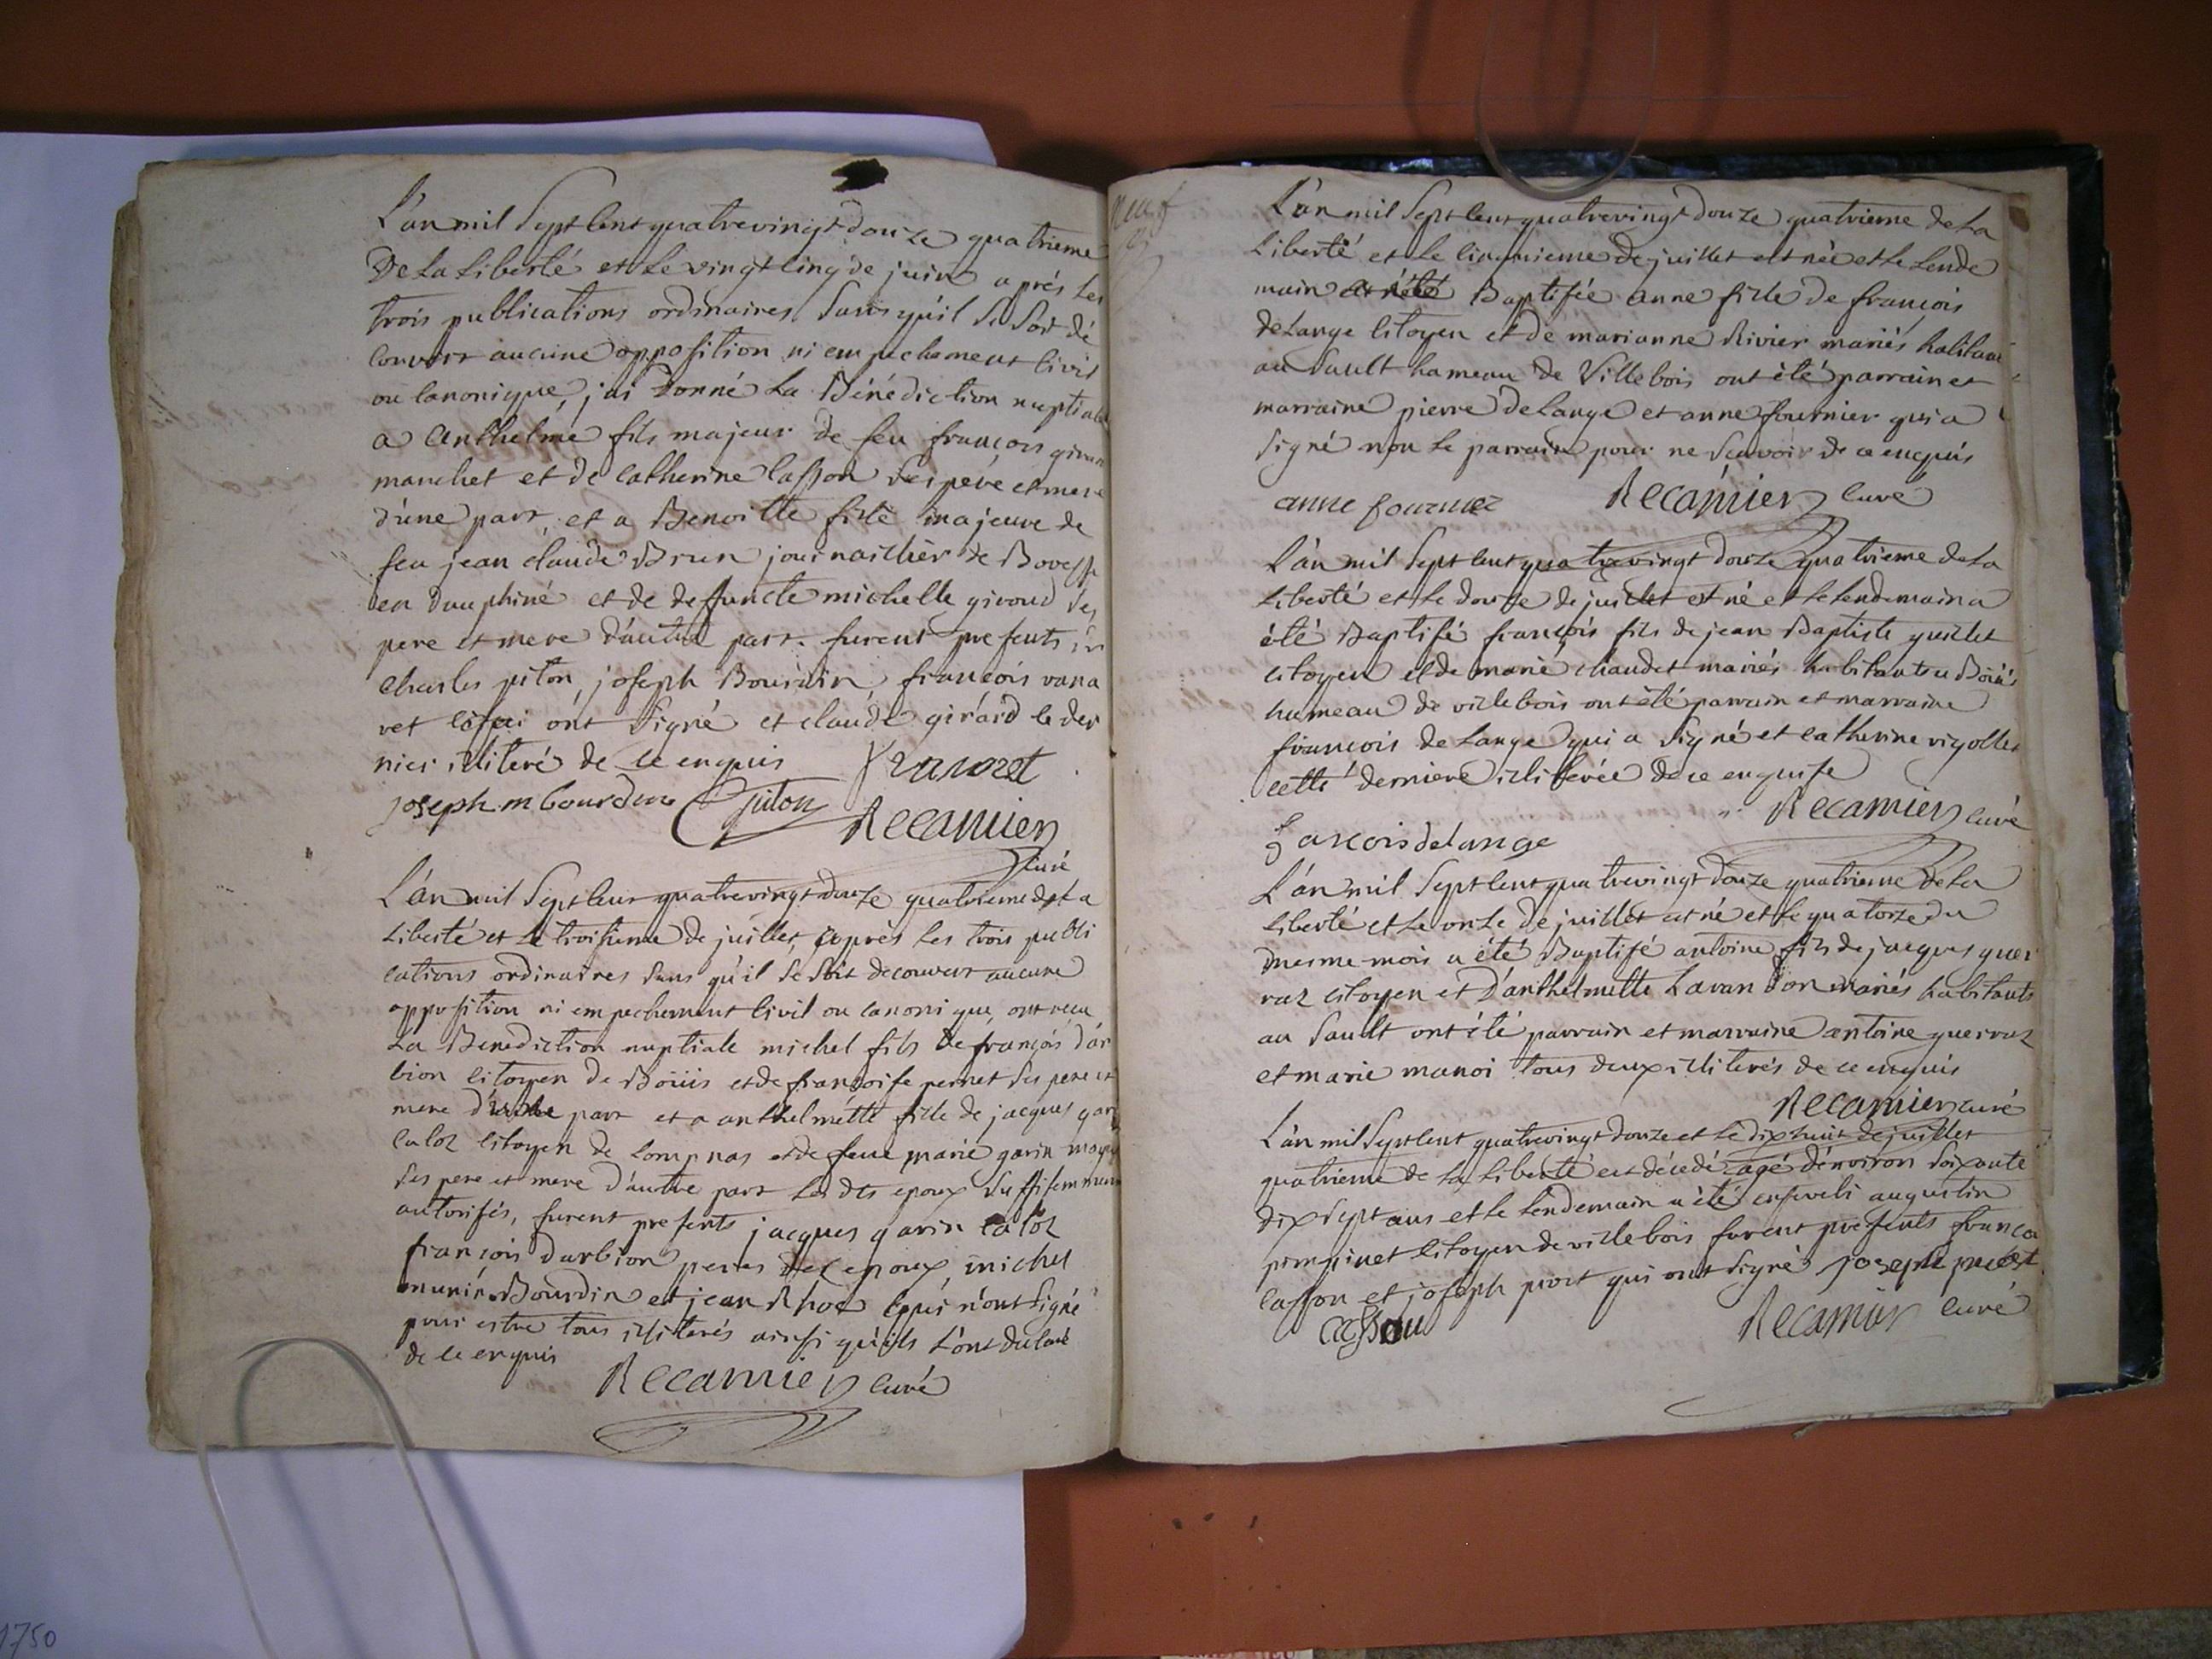 L'an mil Sept Cent quatrevingt douze quatrieme
De La Liberté et Le vingt Cinq de juin aprés Les
trois publications ordinaires Sans qu'il Se Soit dé
Couvert aucune opposition ni empechement Civil
ou Canonique, j'ai donné La Bénédiction nuptiale
a anthelme fils majeur de feu françois
manchet et de Catherine Casson Ses pere et mere
d'une part, et a Benoitte fille majeure de
feu jean claude Brun journaillier de
en dauphiné et de deffuncte michelle giroud Ses
pere et mere d'autre part. furent presents
Charles piton, joseph Bourdin, françois vana
ret qui ont Signé et claude girard le der
nier illiteré de ce enquis vanaret
joseph m bourdin piton
Recamier
Curé
L'an mil Sept Cent quatrevingt douze quatrieme de La
Liberté et Le troisieme de juillet, aprés Les trois publi
cations ordinaires Sans qu'il Se Soit decouvert aucune
opposition ni empechement Civil ou canonique, ont recu
La Benediction nuptiale michel fils de françois d'ar
bion Citoyen de Boüis et de françoise pernet Ses pere et
mere d'une part et a anthelmette fille de jacques garin
Caloz Citoyen de Lompnas et de feue marie garin
Ses pere et mere d'autre part Les dts epoux Suffisemment
autorisés, furent presents jacques garin Caloz
françois darbion peres des epoux, michel
Bourdin et jean qui n'ont Signé
pour estre tous illiterés ainsi qu'ils L'ont declaré
de ce enquis
Recamier Curé
L'an mil Sept Cent quatrevingt douze quatrieme de La
Liberté et Le Cinquieme de juillet est née et Le Lende
main Baptisée anne fille de françois
deLange Citoyen et de marianne Rivier mariés habitant
au Sault hameau de Villebois ont été parrain et
marraine pierre deLange et anne fournier qui a
Signé non Le parrain pour ne Scavoir de ce enquis
anne fournier Recamier Curé
L'an mil Sept Cent quatrevingt douze quatrieme de La
Liberté et Le douze de juillet est né et Le Lendemain a
été Baptisé françois fils de jean Baptiste guillet
Citoyen et de marie chaudet mariés habitants a Boüis
hameau de villebois ont été parrain et marraine
françois deLange qui a Signé et catherine rigollet
cette derniere illiterée de ce enquise
Recamier Curé
fancois delange
L'an mil Sept Cent quatrevingt douze quatrieme de La
Liberté et Le onze de juillet est né et Le quatorze du
mesme mois a été Baptisé antoine fils de jacques quer
raz Citoyen et d'anthelmette Lavandon mariés habitants
au Sault ont été parrain et marraine antoine querraz
et marie manoi tous deux illiterés de ce enquis
Recamier curé
L'an mil Sept Cent quatrevingt douze et Le dix huit de juillet
quatrieme de La Liberté est décedé agé d'environ Soixante
dix Sept ans et Le Lendemain a été enseveli augustin
Citoyen de villebois furent presents françois
Casson et joseph qui ont Signé joseph
Casson Recamier Curé
1750